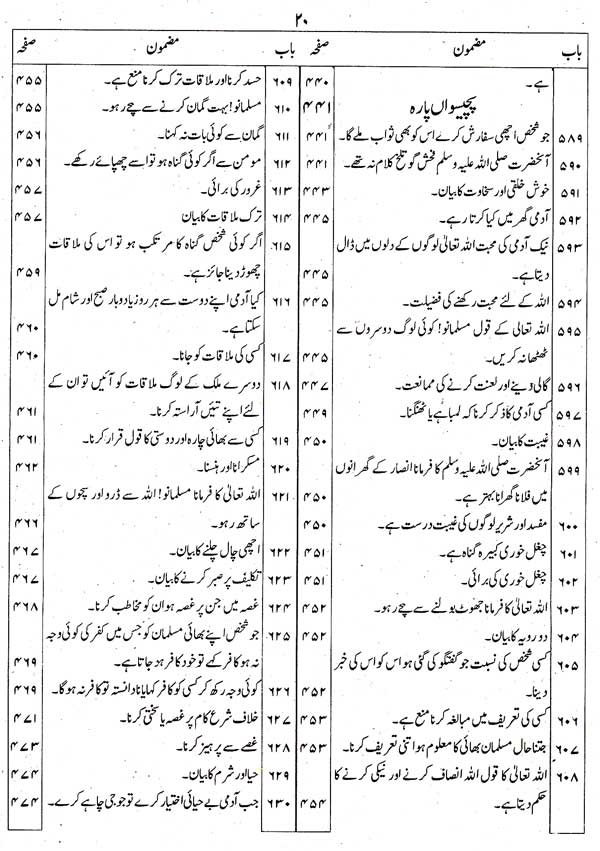 ۲۰
باب مضمون صفحہ
ہے۔ ۴۴۰
پچیسواں پارہ ۴۴۱
۵۸۹ جو شخص اچھی سفارش کرے اس کو بھی ثواب ملے گا۔ ۴۴۱
۵۹۰ آنحضرت صلی اللہ علیہ وسلم فحش گو تلخ کلام نہ تھے۔ ۴۴۱
۵۹۱ خوش خلقی اور سخاوت کا بیان۔ ۴۴۳
۵۹۲ آدمی گھر میں کیا کرتا رہے۔ ۴۴۵
۵۹۳ نیک آدمی کی محبت اللہ تعالیٰ لوگوں کے دلوں میں ڈال
دیتا ہے۔ ۴۴۵
۵۹۴ اللہ کے لئے محبت رکھنے کی فضیلت۔ ۴۴۵
۵۹۵ اللہ تعالی کے قول مسلمانو! کوئی لوگ دوسروں سے
ٹھٹھا نہ کریں۔ ۴۴۵
۵۹۶ گالی دینے اور لعنت کرنے کی ممانعت۔ ۴۴۷
۵۹۷ کسی آدمی کا ذکر کرنا کہ لمبا ہے یا ٹھنگنا۔ ۴۴۹
۵۹۸ غیبت کا بیان۔ ۴۵۰
۵۹۹ آنحضرت صلی اللہ علیہ وسلم کا فرمانا انصار کے گھرانوں
میں فلانا گھرانا بہتر ہے۔ ۴۵۰
۶۰۰ مفسد اور شریر لوگوں کی غیبت درست ہے۔ ۴۵۰
۶۰۱ چغل خوری کبیرہ گناہ ہے۔ ۴۵۱
۶۰۲ چغل خوری کی برائی۔ ۴۵۱
۶۰۳ اللہ تعالیٰ کا فرمانا جھوٹ بولنے سے بچے رہو۔ ۴۵۲
۶۰۴ دو رویہ کا بیان۔ ۴۵۲
۶۰۵ کسی شخص کی نسبت جو گفتگو کی گئی ہو اس کو اس کی خبر
دینا۔ ۴۵۲
۶۰۶ کسی کی تعریف میں مبالغہ کرنا منع ہے۔ ۴۵۳
۶۰۷ جتنا حال مسلمان بھائی کا معلوم ہو اتنی تعریف کرنا۔ ۴۵۳
۶۰۸ اللہ تعالیٰ کا قول اللہ انصاف کرنے اور نیکی کرنے کا
حکم دیتا ہے۔ ۴۵۴
باب مضمون صفحہ
۶۰۹ حسد کرنا اور ملاقات ترک کرنا منع ہے۔ ۴۵۵
۶۱۰ مسلمانو! بہت گمان کرنے سے بچے رہو۔ ۴۵۵
۶۱۱ گمان سے کوئی بات نہ کہنا۔ ۴۵۶
۶۱۲ مومن سے اگر کوئی گناہ ہو تو اسے چھپائے رکھے۔ ۴۵۶
۶۱۳ غرور کی برائی۔ ۴۵۷
۶۱۴ ترک ملاقات کا بیان ۴۵۷
۶۱۵ اگر کوئی شخص گناہ کا مرتکب ہو تو اس کی ملاقات
چھوڑ دینا جائز ہے۔ ۴۵۹
۶۱۶ کیا آدمی اپنے دوست سے ہر روز یا دوبار صبح اور شام مل
سکتا ہے۔ ۴۶۰
۶۱۷ کسی کی ملاقات کو جانا۔ ۴۶۰
۶۱۸ دوسرے ملک کے لوگ ملاقات کو آئیں تو ان کے
لئے اپنے تئیں آراستہ کرنا۔ ۴۶۱
۶۱۹ کسی سے بھائی چارہ اور دوستی کا قول قرار کرنا۔ ۴۶۱
۶۲۰ مسکرانا اور ہنسنا۔ ۴۶۲
۶۲۱ اللہ تعالیٰ کا فرمانا مسلمانو! اللہ سے ڈرو اور سچوں کے
ساتھ رہو۔ ۴۶۶
۶۲۲ اچھی چال چلنے کا بیان۔ ۴۶۷
۶۲۳ تکلیف پر صبر کرنے کا بیان۔ ۴۶۷
۶۲۴ غصہ میں جن پر غصہ ہو ان کو مخاطب کرنا۔ ۴۶۸
۶۲۵ جو شخص اپنے بھائی مسلمان کو جس میں کفر کی کوئی وجہ
نہ ہو کافر کہے تو خود کافر ہو جاتا ہے۔ ۴۶۹
۶۲۶ کوئی وجہ رکھ کر کسی کو کافر کہا یا نادانستہ تو کافر نہ ہوگا۔ ۴۶۹
۶۲۷ خلاف شرع کام پر غصہ یا سختی کرنا۔ ۴۷۱
۶۲۸ غصے سے پرہیز کرنا۔ ۴۷۳
۶۲۹ حیا اور شرم کا بیان۔ ۴۷۴
۶۳۰ جب آدمی بے حیائی اختیار کرے تو جو جی چاہے کرے۔ ۴۷۴